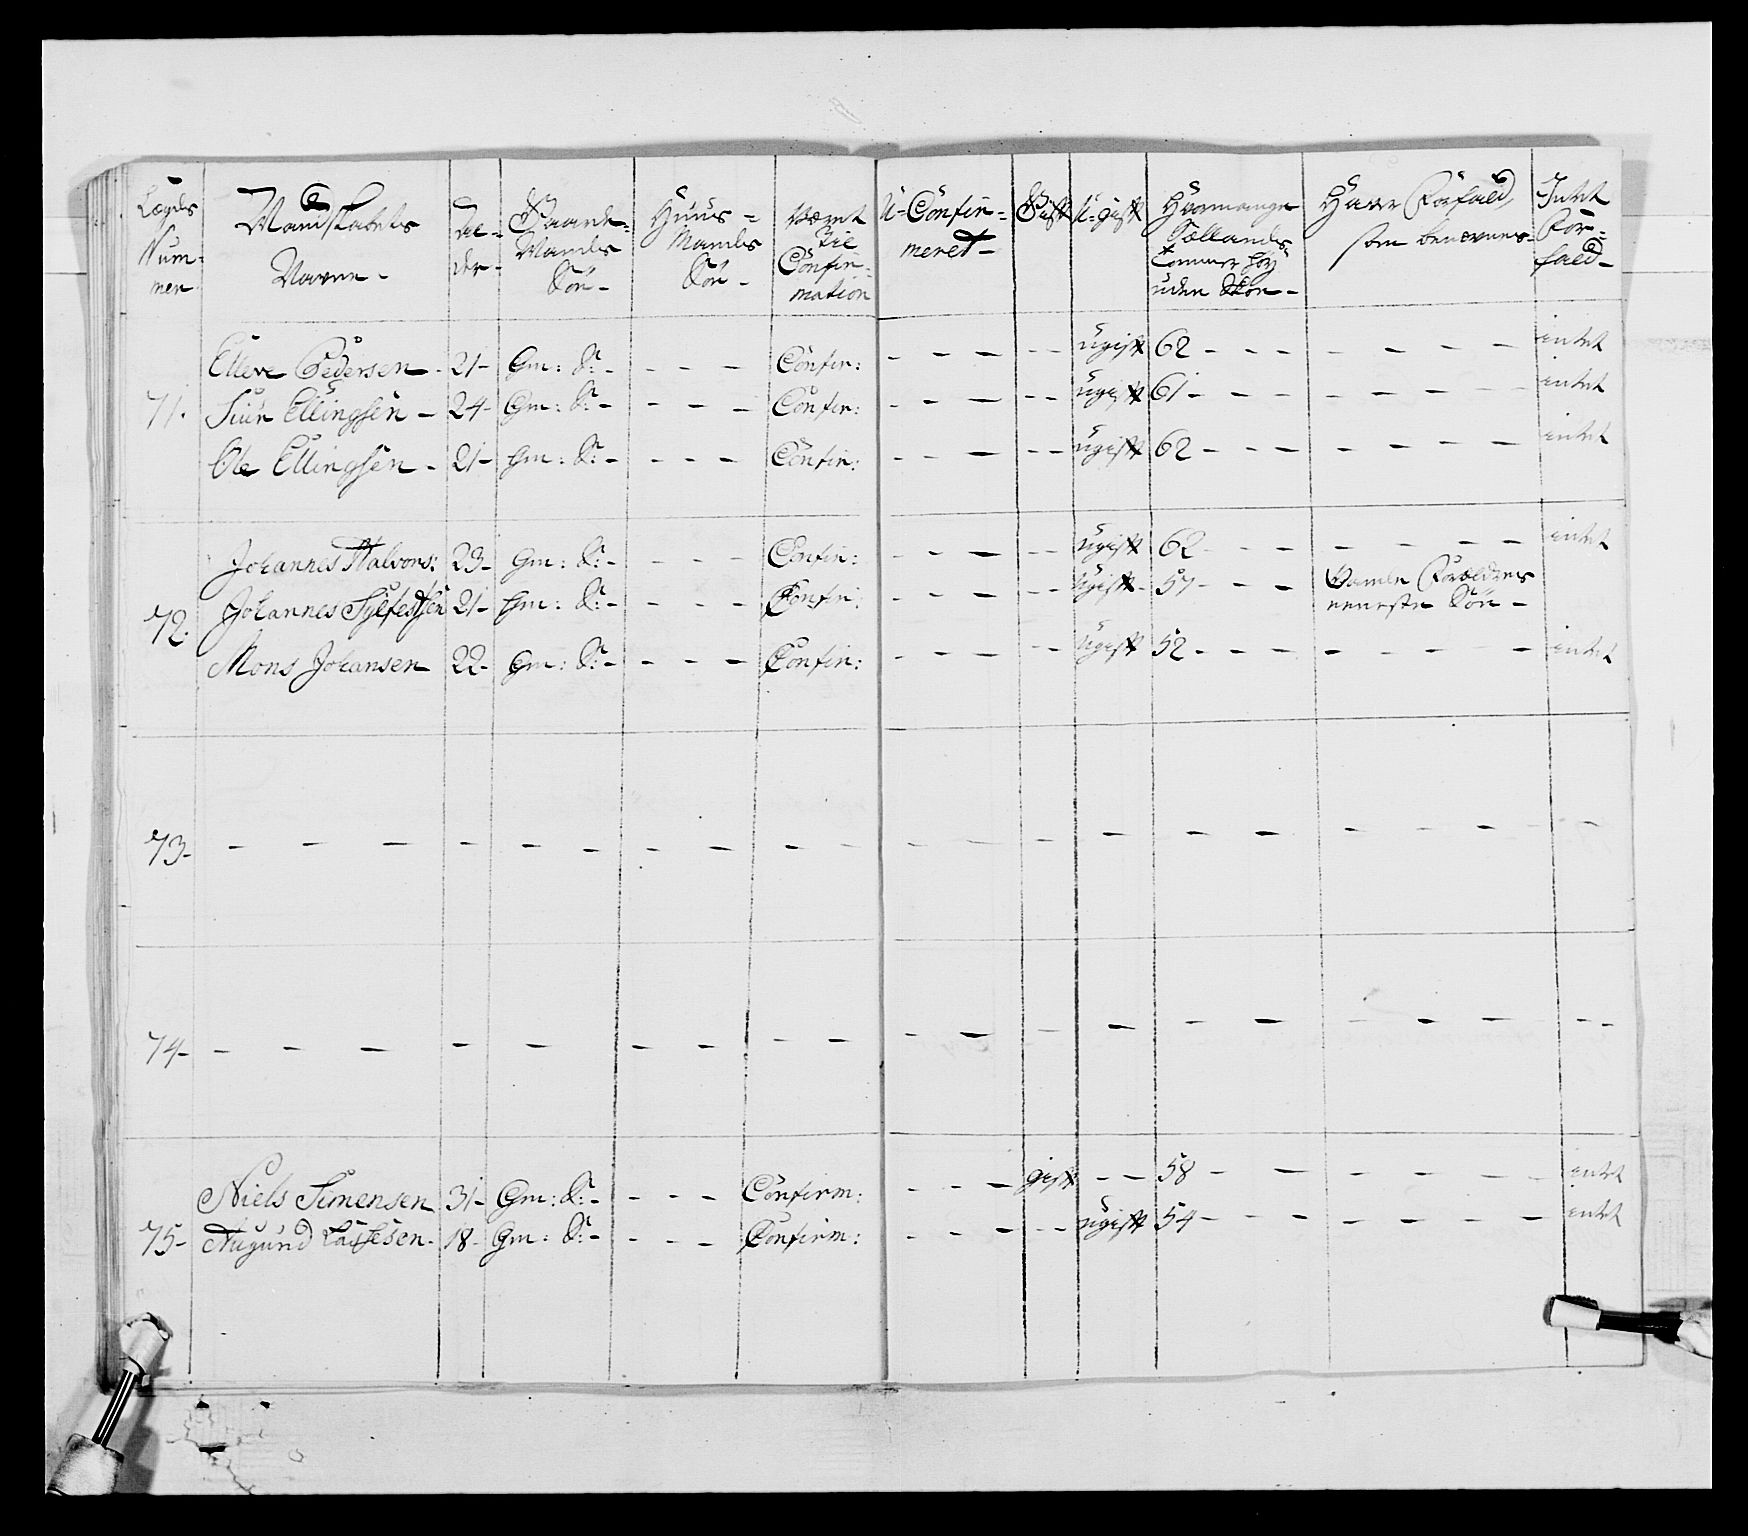 Lægds Nummer
Mandskabets Navne -
Alder -
Gaard-Mands Søn -
Huus-Mands Søn -
Været til Confirmation
U-Confirmeret -
Gift
U-gift
Hvormange Siællandske Tommer høy uden Skoe -
Have Forfald, som benævnes -
Intet Forfald -
Elleve Pedersen - 21 - Gm: S: - - - - Confir: - - - - - ugift 62 - - - - - - - intet
71. Siur Ellingsen - 24 - Gm: S: - - - - Confir: - - - - - ugift 61 - - - - - - - intet
Ole Ellingsen - 21 - Gm: S: - - - - Confir: - - - - - ugift 62 - - - - - - - intet
Johannes Halvors: 23 - Gm: S: - - - - Confir: - - - - - ugift 62 - - - - - - - intet
72. Johannes Sylfestsen 21 - Gm: S: - - - - Confir: - - - - - Ugift - 57 - - - Gamle Forældres
eneste Søn -
Mons Johansen 22 - Gm: S: - - - - Confir: - - - - - Ugift 52 - - - - - - - intet
73 - - - - - - - - - - - - - - - - - - - -
74 - - - - - - - - - - - - - - - - - - - -
Niels Simensen 31 - Gm: S: - - - - Confirm: - - - gift - - 58 - - - - - - intet
75 - Augund Lassesen - 18 - Gm: S: - - - - Confirm: - - - - - ugift 54 - - - - - - - intet